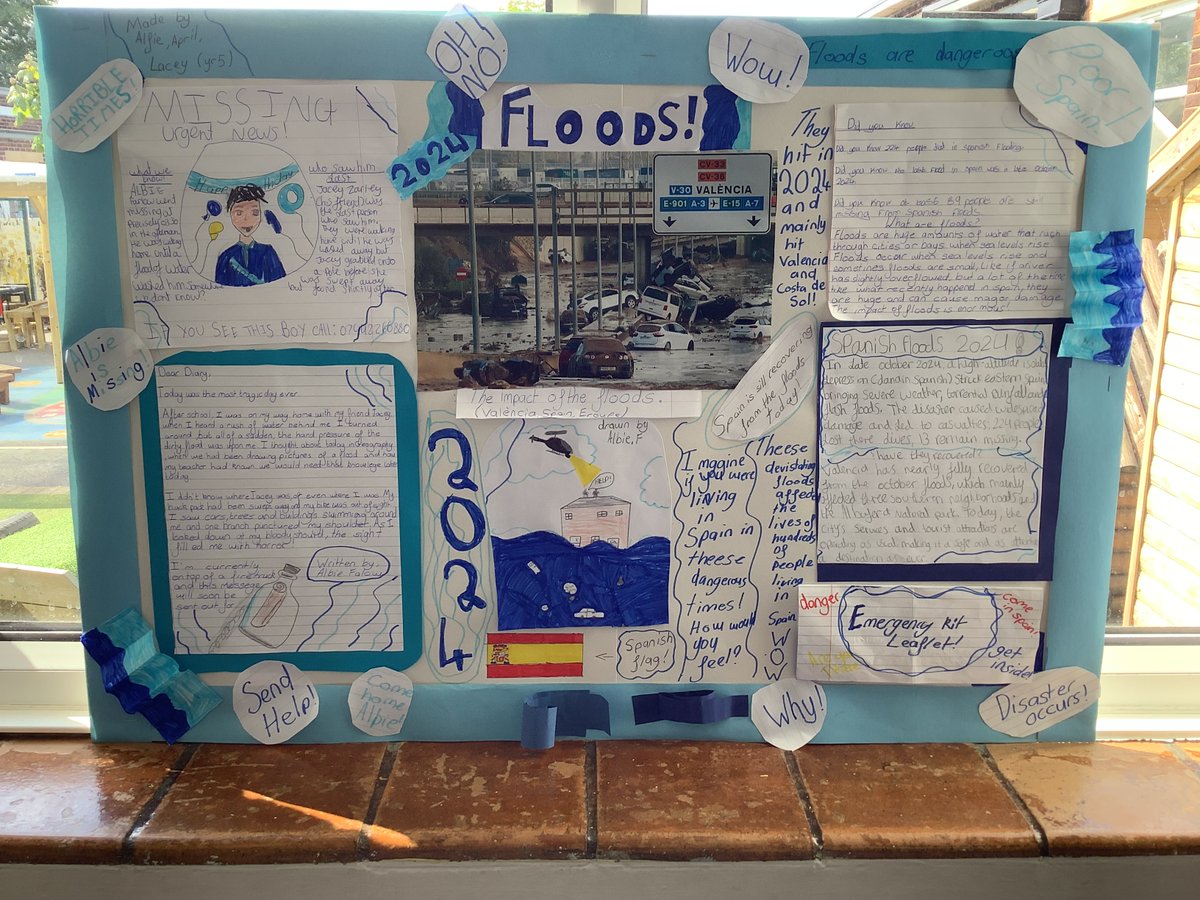 Made by
Alfie, April,
Lacey (yr5)
HORRIBLE
TIMES!
OH!
NO!
Wow!
Floods are dangerous
Poor
Spain!
MISSING
Urgent News!
what we
know!
ALBIE
went
missing at
precisely
in the afternoon
He was
home until a
flood of water
washed him
I don't know?
Happy Birthday
who saw him
last
Jacey
(his friend) was
the last person
who saw him,
They were walking
home until he was
washed away but
Jacey grabbed onto
a pole before she
was swept away
but found shortly after
IF YOU SEE THIS BOY CALL:
Albie
Is
Missing
2024
FLOODS!
CV-33
CV-36
V-30 VALÈNCIA
E-901 A-3 E-15 A-7
The impact of the floods.
(Valencia, Spain, Europe)
They
hit in
2024
and
mainly
hit
Valencia
and
Costa de
Sol!
Did you know
Did you know 224 people died in spanish flooding.
Did you know the
2024.
Did you know at least 89 people are still
missing from Spanish floods
What are floods?
Floods are huge amounts of water that rush
through cities or bays when sea levels rise
Floods occur when sea levels rise and
sometimes floods are small, like if a river
has slightly overflowed but a lot of the time
like what recently happened in spain, they
are huge and can cause magor damage
the impact of floods is enormous!
Spain is still recovering
from the floods
today!
Dear Diary,
Today was the most tragic day ever
After school, I was on my way home with my friend Jacey
when I heard a rush of water behind me. I turned
around but all of a sudden, the hard pressure of the
dirty flood was upon me. I thought about back in geography
when we had been drawing pictures of a flood and how
my teacher had known we would need that knowledge later
today
I didn't know where Jacey was or even where I was. My
back pack had been swept away and my bike was out of sight
I saw cars, trees and buildings slamming around
me and one branch punctured my shoulder. As I
looked down at my bloody should, the sight
filled me with horror.
I'm currently
on top of a fire truck
and this message
will soon be
sent out for
Written by,
Albie
2024
drawn by
Albie, F
HELP!
Imagine
if you were
living
in
Spain in
theese
dangerous
times!
How would
you
feel?
Theese
devistating
floods
affected
the
lives of
hundreds
of
people
living
in
Spain
WOW
Spanish floods 2024
In late October 2024, a high-altitude isolated
depression (dana in Spanish) struck eastern spain
bringing severe weather, torrential rain, and
flash floods. The disaster caused widespread
damage and led to casualties: 224 people
lost there lives, 13 remain missing.
have they recovered?
Valencia has nearly fully recovered
from the october floods, which mainly
affected three southern neighborhoods and
the Albufera natural park. Today, the
city's services and tourist attractions are
operating as usual making it a safe and as
a destination as ever
danger
Emergency Kit
Leaflet!
come
in Spain!
get
inside!
Spanish
flag!
Send
Help!
Come
home
Albie!
Why!
Disaster
occurs!